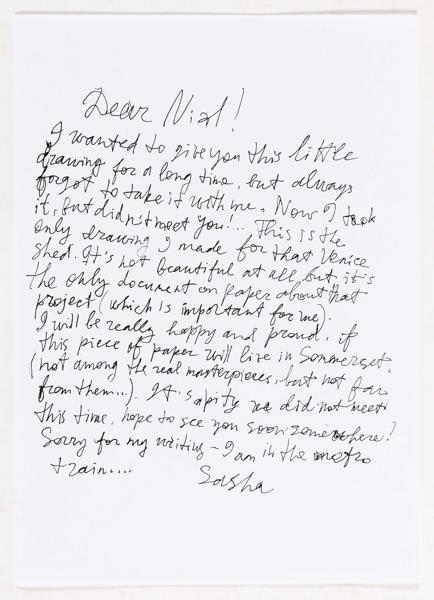 Dear Nial!
I wanted to give you this little
drawing for a long time, but always
forgot to take it with me. Now I took
it, but didn't meet you!... This is the
only drawing I made for that Venice
shed. It's not beautiful at all but it's
the only document on paper about that
project (which is important for me).
I will be really happy and proud, if
this piece of paper will live in Sommerset.
(not among the real masterpieces, but not far
from them...). It's a pity we did not meet
this time, hope to see you soon somewhere!
Sorry for my writing - I am in the metro
train....
Sasha